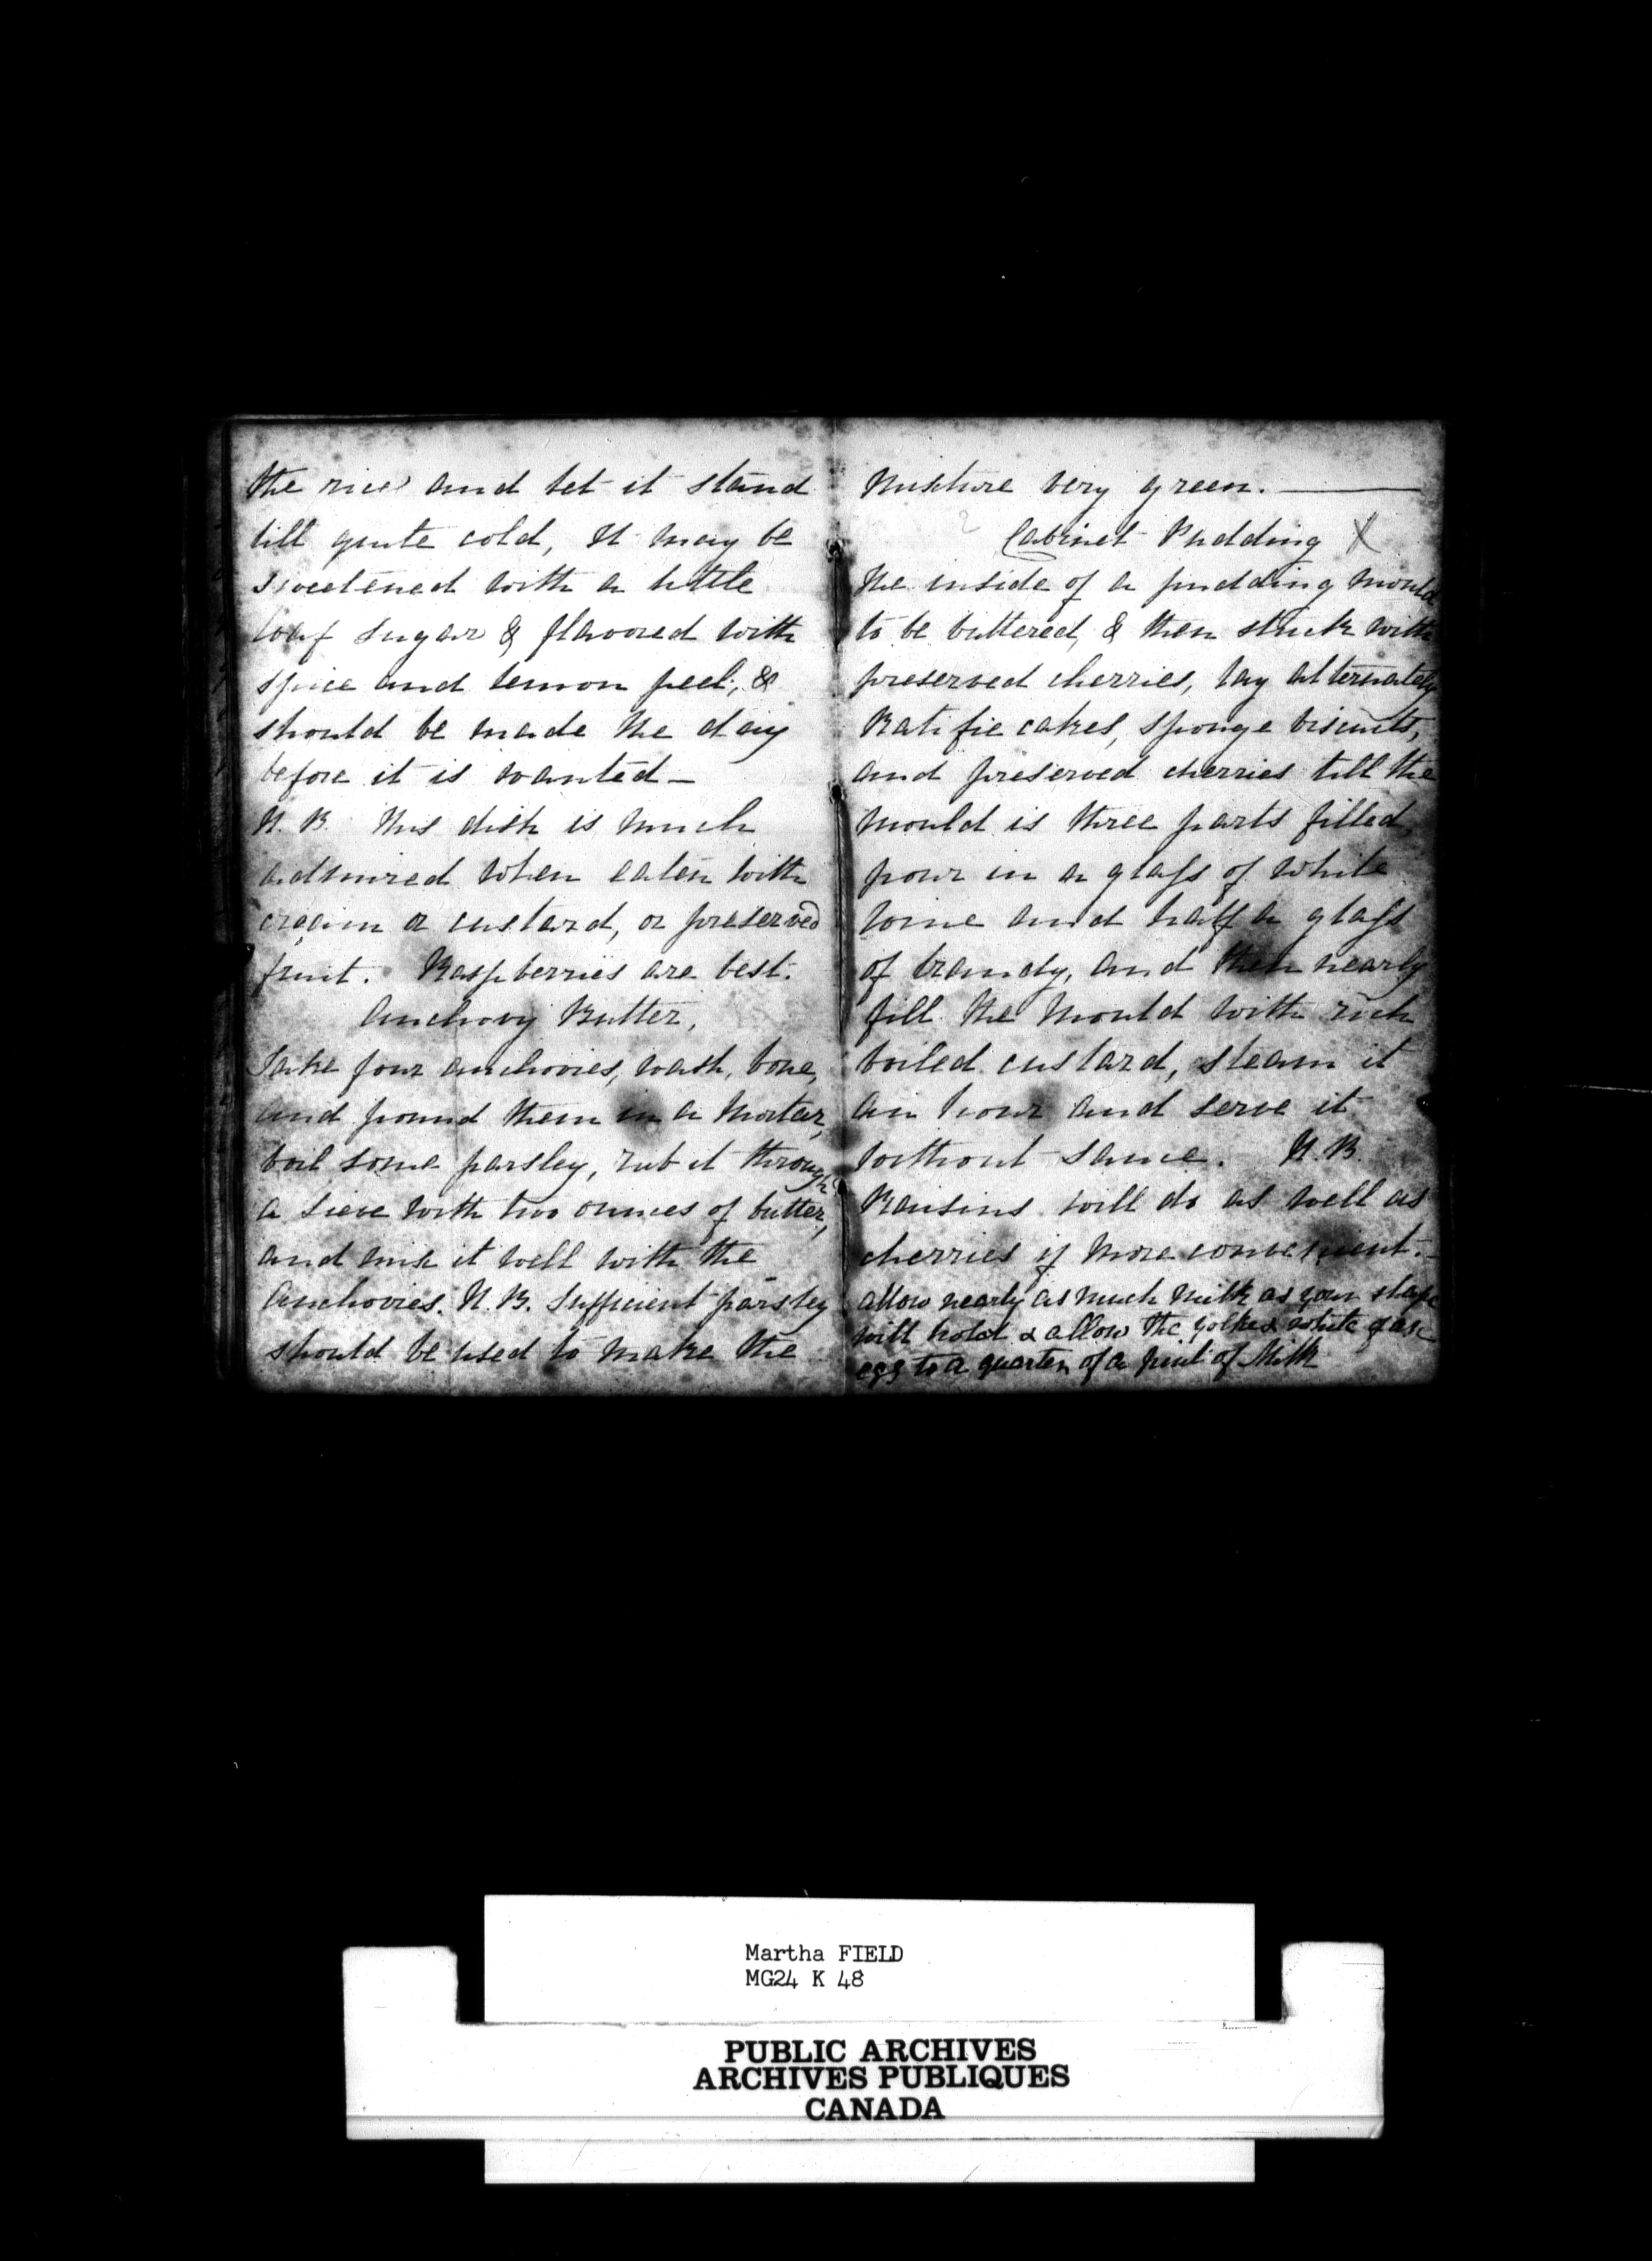 the rice and let it stand
till quite cold, It may be
sweetened with a little
loaf sugar & flavored with
spice and lemon peel; &
should be made the day
before it is wanted –
N. B. This dish is much
admired when eaten with
cream or custard, or preserved
fruit. Raspberries are best.
Anchovy Butter,
Take four anchovies, wash, bone,
and pound them in a mortar,
boil some parsley, rub it through
a sieve with two ounces of butter,
and mix it well with the
Anchovies. N. B. Sufficient parsley
should be used to make the
mixture very green. ———
Cabinet Pudding X
The inside of a pudding mould
to be buttered, & then stuck with
preserved cherries, lay alternately
Ratifie cakes, sponge biscuits,
and preserved cherries till the
mould is three parts filled,
pour in a glass of white
wine and half a glass
of brandy, and then nearly
fill the mould with rich
boiled custard, steam it
an hour and serve it
without sauce. N. B.
Raisins will do as well as
cherries if more convenient. –
allow nearly as much milk as your shape
will hold & allow the yolk & white of an
egg to a quarter of a pint of Milk
Martha FIELD
MG24 K 48
PUBLIC ARCHIVES
ARCHIVES PUBLIQUES
CANADA